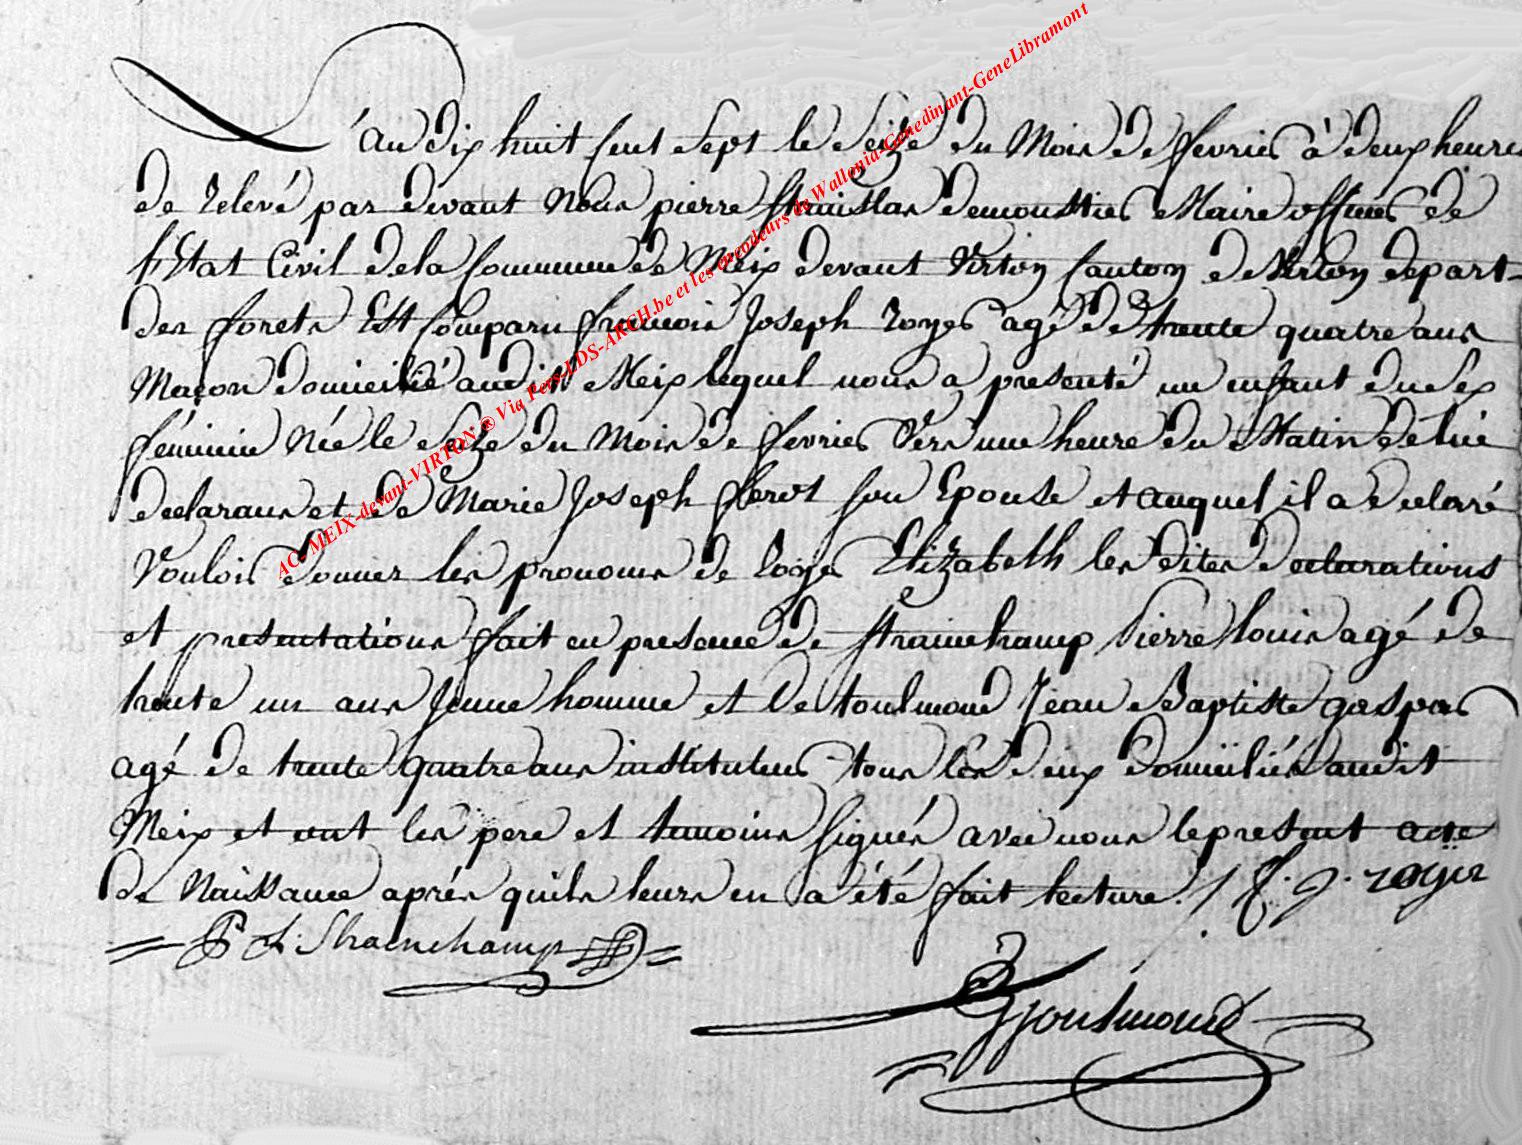 L'an dix huit cent sept le seize du Mois de fevrier à deux heures
de relevé par devant Nous pierre stanislas demoustier Maire officier de
l'Etat Civil dela Commune de Meix devant Virton Canton de Virton depart-
des forets Est Comparu francois Joseph roger agé de trente quatre ans
Maçon domicilié audit Meix lequel nous a presenté un enfant du sex
féminin Née le seize du Mois de fevrier vers une heure du Matin de lui
declarant et de Marie Joseph son Epouse et auquel il a declaré
Vouloir donner les pronoms de Elizabeth les dites declarations
et presentations fait en presence de strainchamp Pierre louis agé de
trente un ans Jeune homme et de toulmond Jean Baptiste gaspar
agé de trente quatre ans instituteur tous les deux domiciliés audit
Meix et ont les pere et temoins signés avec nous le present acte
de Naissance aprés quils leurs en a été fait lecture. / f. j. roger
P L Strainchamp
Toulmond
AC- MEIX-devant-VIRTON ® Via Pers-LDS-ARCH.be et les encodeurs de Wallonia-Genedinant-GeneLibramont